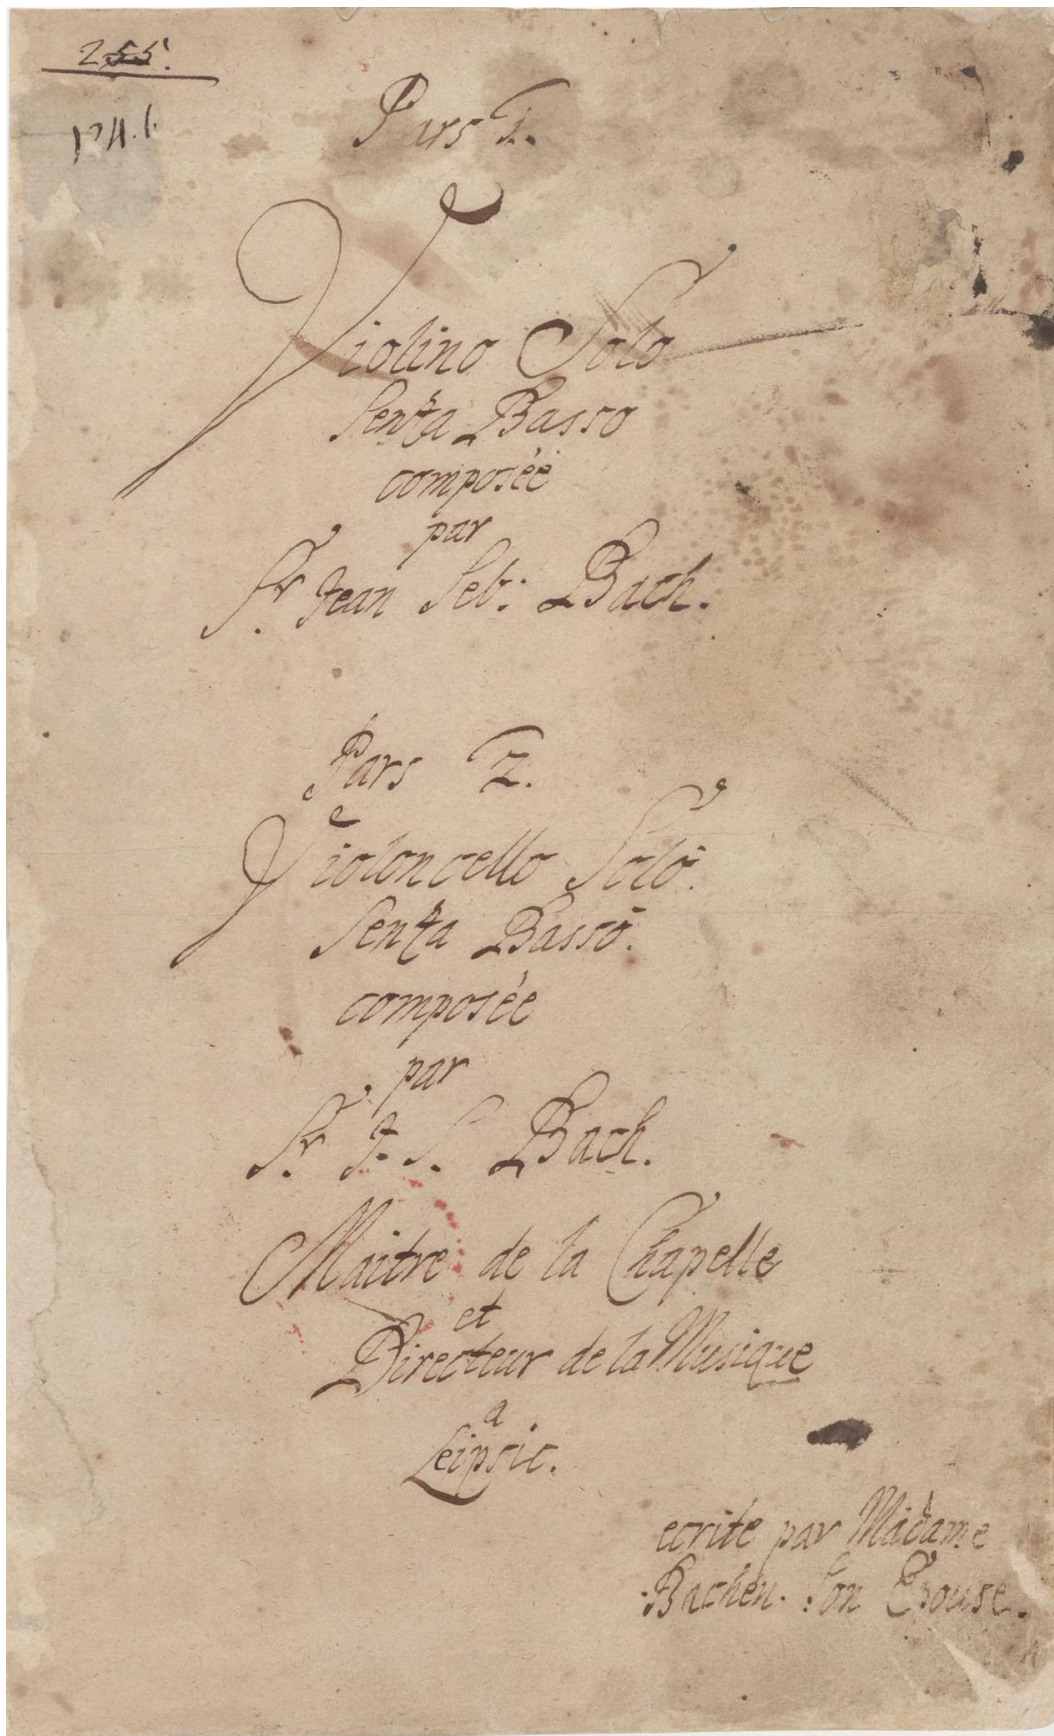 255.
Pars 1.
Violino Solo
Senza Basso
composée
par
Sr. Jean Seb: Bach.
Pars 2.
Violoncello Solo.
Senza Basso.
composée
par
Sr. J. S. Bach.
Maitre de la Chapelle
et
Directeur de la Musique
a
Leipsic.
ecrite par Madame
Bachen. Son Epouse.